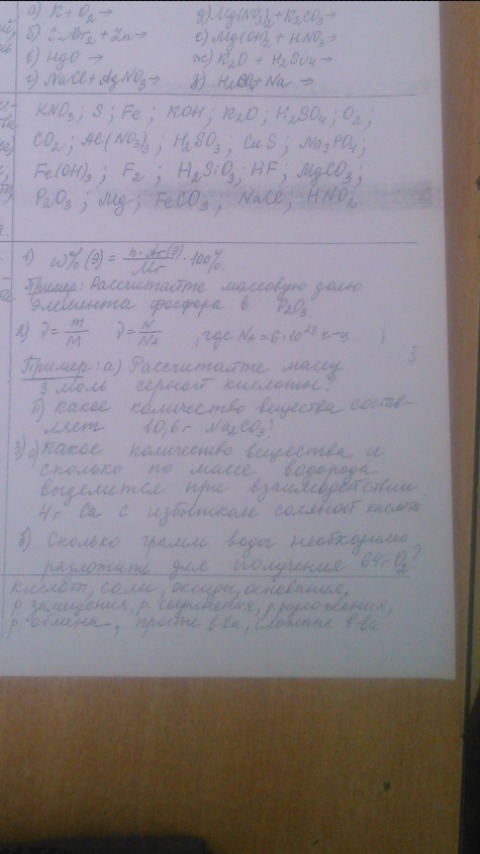 а) K + O₂ →
д) Mg(NO₃)₂ + K₂CO₃ →
б) CuBr₂ + Zn →
е) Mg(OH)₂ + HNO₃ →
в) HgO →
ж) K₂O + H₂SO₄ →
г) NaCl + AgNO₃ →
KNO₃; S; Fe; KOH; K₂O; H₂SO₄; O₂;
CO₂; Al(NO₃)₃; H₂SO₃; CuS; Na₃PO₄;
Fe(OH)₃; F₂; H₂SiO₃; HF; MgCO₃;
P₂O₃; Mg; FeCO₃; NaCl; HNO₂
1) W%(Э) = n·Ar(Э)/Mr · 100%.
Пример: Рассчитайте массовую долю
элемента фосфора в P₂O₃
2) ν = m/M ν = N/Nа, где Nа = 6·10²³ ч-ц
Пример: а) Рассчитайте массу
3 моль серной кислоты?
б) какое количество вещества состав-
ляет 10,6г Na₂CO₃?
3) а) какое количество вещества и
сколько по массе водорода
выделится при взаимодействии
4г Ca с избытком соляной кислоты
б) Сколько грамм воды необходимо
разложить для получения 64г O₂?
кислоты, соли, оксиды, основания,
р. замещения, р. соединения, р. разложения,
р. обмена, простые в-ва, сложные в-ва